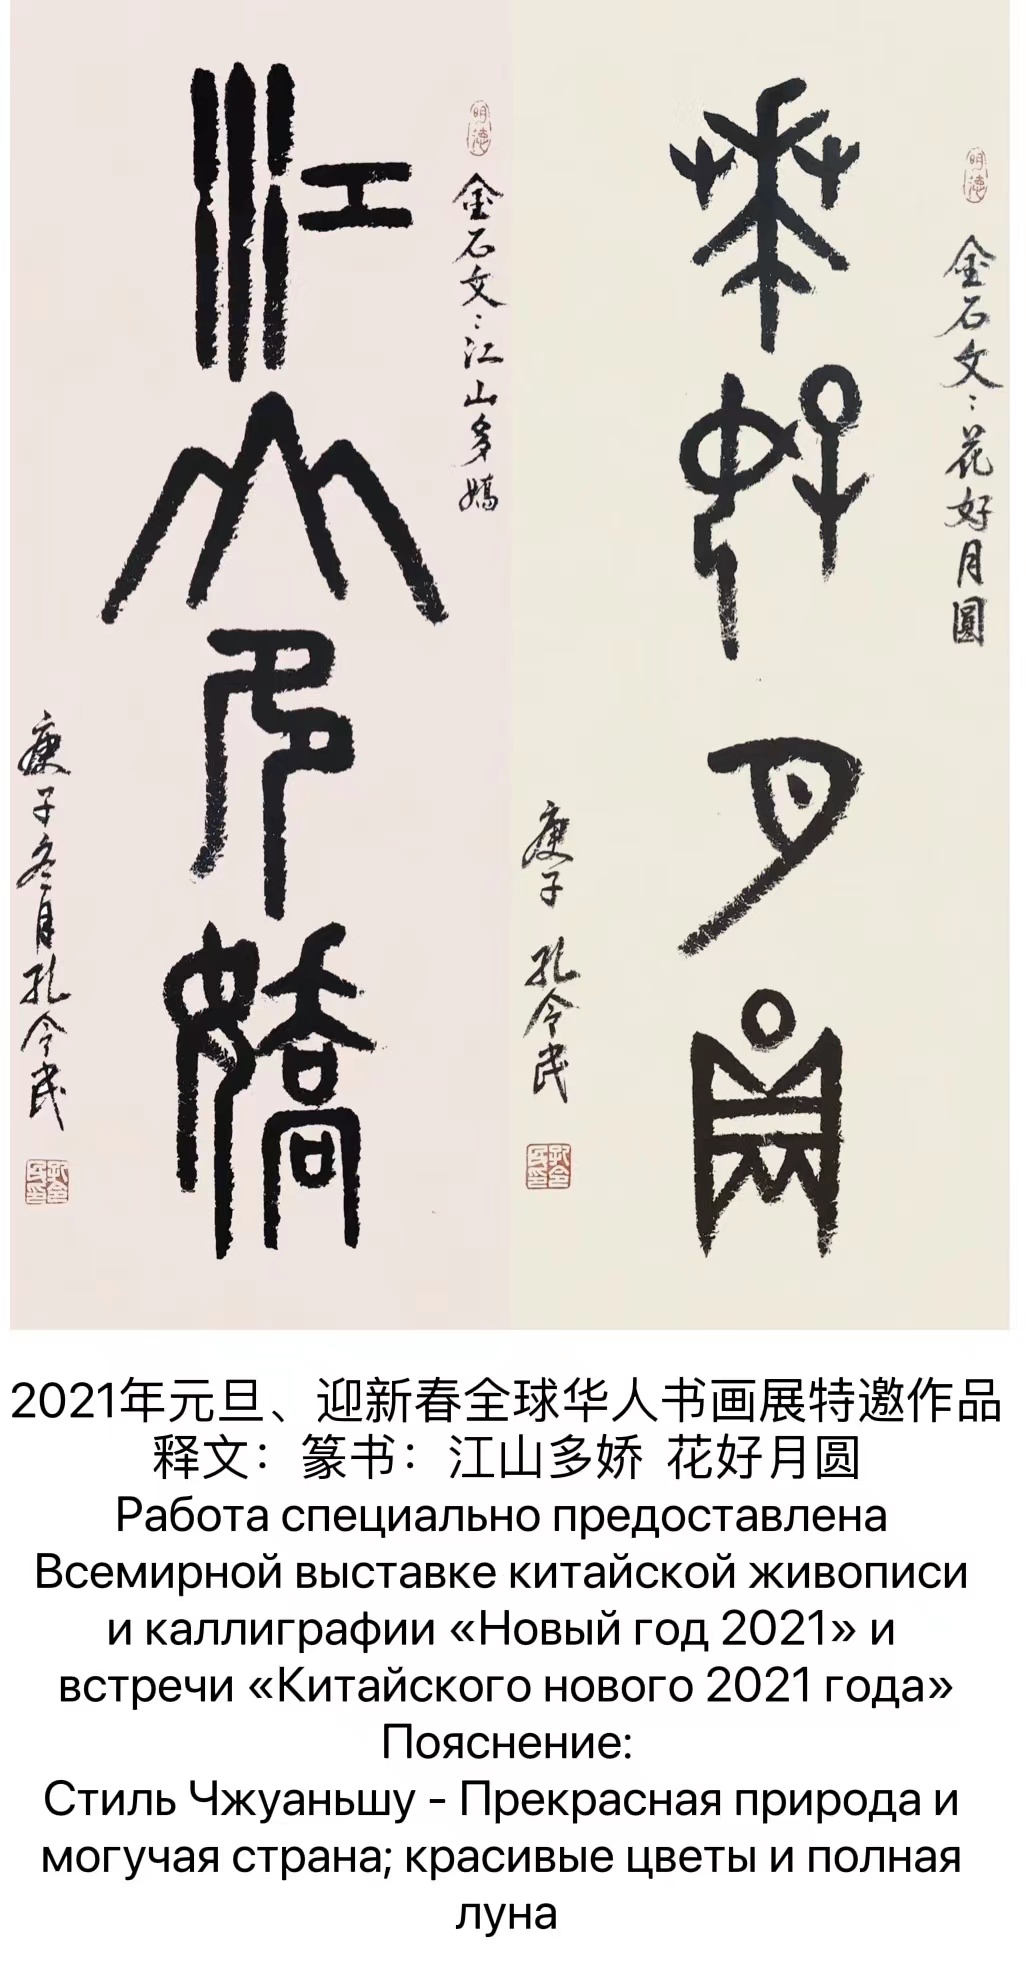 江山多嬌
金石文：江山多嬌
庚子冬月孔令民
花好月圓
金石文：花好月圓
庚子 孔令民
明德
明德
2021年元旦、迎新春全球华人书画展特邀作品
释文：篆书：江山多娇 花好月圆
Работа специально предоставлена
Всемирной выставке китайской живописи
и каллиграфии «Новый год 2021» и
встречи «Китайского нового 2021 года»
Пояснение:
Стиль Чжуаньшу - Прекрасная природа и
могучая страна; красивые цветы и полная
луна